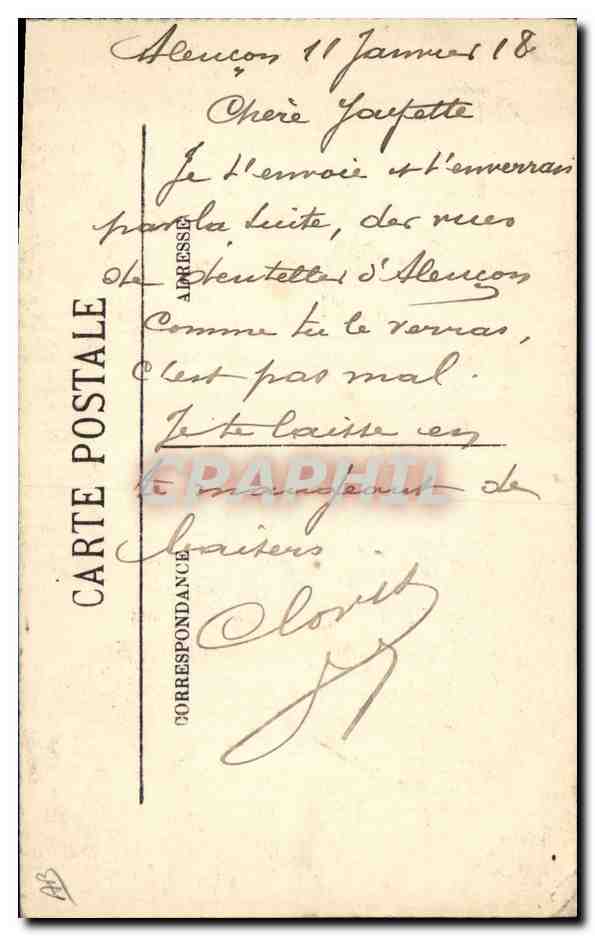 Alençon 11 Janvier 18
Chère
Je t'envoie et t'enverrais
par la suite, des vues
de dentelles d'Alençon
Comme tu le verras,
c'est pas mal.
Je te laisse en
te mangeant de
baisers
Clovis
CARTE POSTALE
ADRESSE
CORRESPONDANCE
CPAPHIL
AB